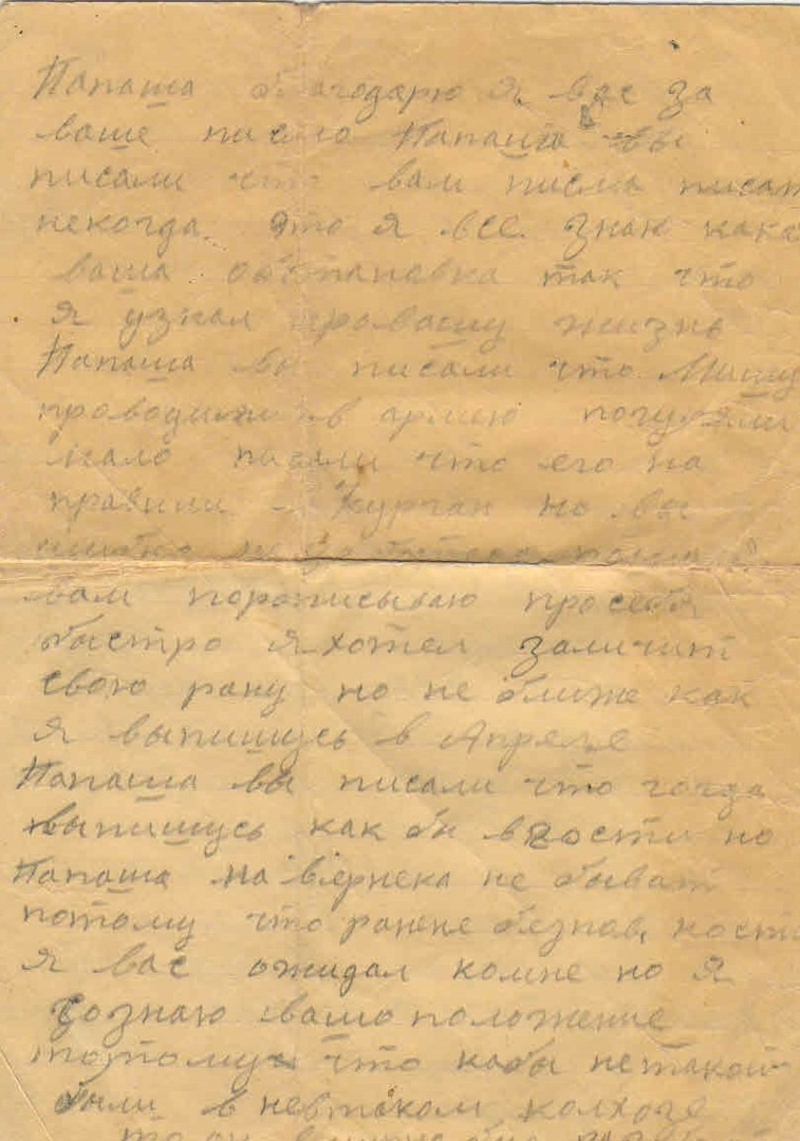 Папаша благодарю я вас за
ваше писмо Папаша вы
писали что вам писма писат
некогда. Это я все знаю кака
ваша обстановка так что
я узнал про вашу жизнь
Папаша вы писали что Мишу
проводили в армию погуляли
мало писали что его на
правили Курган но вы
вам прописываю про себя
быстро я хотел заличит
свою рану но не ближе как
я выпишусь в Апреле
Папаша вы писали что когда
выпишусь как бы в гости но
Папаша на вернека не быват
потому что ранене безпов, кости
я вас ожидал комне но я
сознаю вашо положение
потому что кабы не такой
были в невтаком колхозе